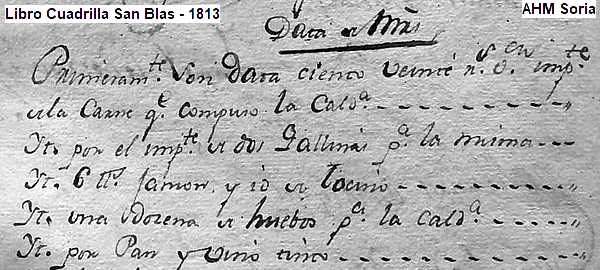 Libro Cuadrilla San Blas - 1813
AHM Soria
Data de Mrs
Primeramte. Son data ciento veinte rs. vn. impte
de la Carne qe. compuso la Calda.
Yt. por el impte de dos Gallinas pa. la misma
Yt. 6 lls. Jamon y 10 de tocino
Yt. una dozena de huebos pa. la Calda.
Yt. por Pan y vino tinto